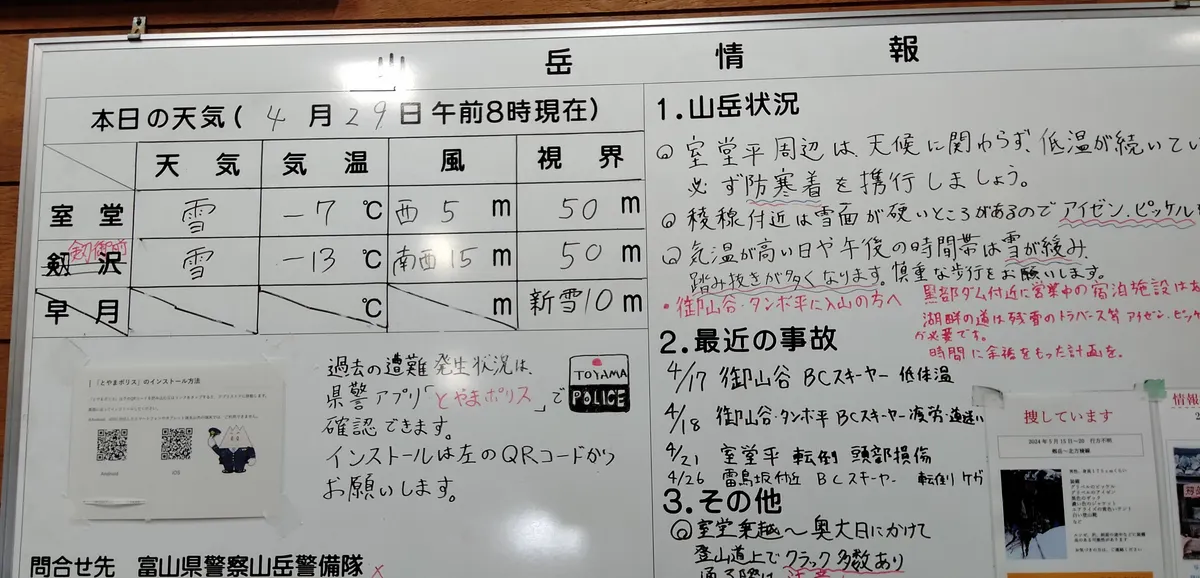 山岳情報
本日の天気(4月29日午前8時現在)
天気 気温 風 視界
室堂 雪 -7℃ 西5m 50m
剱沢 剱御前 雪 -13℃ 南西15m 50m
早月 ℃ m 新雪10m
「とやまポリス」のインストール方法
Android iOS
過去の遭難発生状況は、
県警アプリ「とやまポリス」で
確認できます。
インストールは左のQRコードから
お願いします。
TOYAMA
POLICE
問合せ先 富山県警察山岳警備隊
1.山岳状況
◎室堂平周辺は、天候に関わらず、低温が続いてい
必ず防寒着を携行しましょう。
◎稜線付近は雪面が硬いところがあるのでアイゼン、ピッケル
◎気温が高い日や午後の時間帯は雪が緩み、
踏み抜きが多くなります。慎重な歩行をお願いします。
・御山谷・タンボ平に入山の方へ
黒部ダム付近に営業中の宿泊施設は
湖畔の道は残雪のトラバース等アイゼン、ピッケ
が必要です。
時間に余裕をもった計画を。
2.最近の事故
4/17 御山谷 BCスキーヤー 低体温
4/18 御山谷・タンボ平 BCスキーヤー 疲労・道迷い
4/21 室堂平 転倒 頭部損傷
4/26 雷鳥坂付近 BCスキーヤー 転倒 ケガ
3.その他
◎室堂乗越～奥大日にかけて
登山道上でクラック多数あり
捜しています
2024年5月15日～20 行方不明
情報